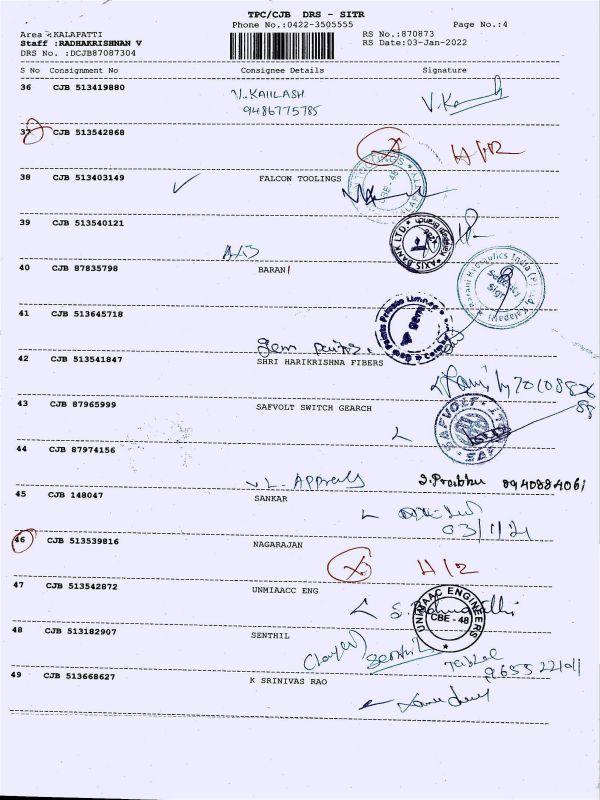 TPC/CJB DRS - SITR
Phone No.:0422-3505555 Page No.:4
Area :KALAPATTI RS No.:870873
Staff :RADHAKRISHNAN V RS Date:03-Jan-2022
DRS No. :DCJB87087304
S No Consignment No Consignee Details Signature
36 CJB 513419880 V. KAIILASH
9486775785
37 CJB 513542868
38 CJB 513403149 FALCON TOOLINGS
CBE - 48
39 CJB 513540121
AXIS BANK LTD.
40 CJB 87835798 BARANI
Barani Hydraulics India (P) Ltd.
Security
Sign
41 CJB 513645718
gem paints.
Gem Paints Private Limited
gem
42 CJB 513541847 SHRI HARIKRISHNA FIBERS
43 CJB 87965999 SAFVOLT SWITCH GEARCH
SAFVOLT
44 CJB 87974156
Apprals 8940884061
45 CJB 148047 SANKAR
03/1/21
46 CJB 513539816 NAGARAJAN
47 CJB 513542872 UNMIAACC ENG
UNIMAAC ENGINEERS
CBE - 48
48 CJB 513182907 SENTHIL
Senthil
49 CJB 513668627 K SRINIVAS RAO